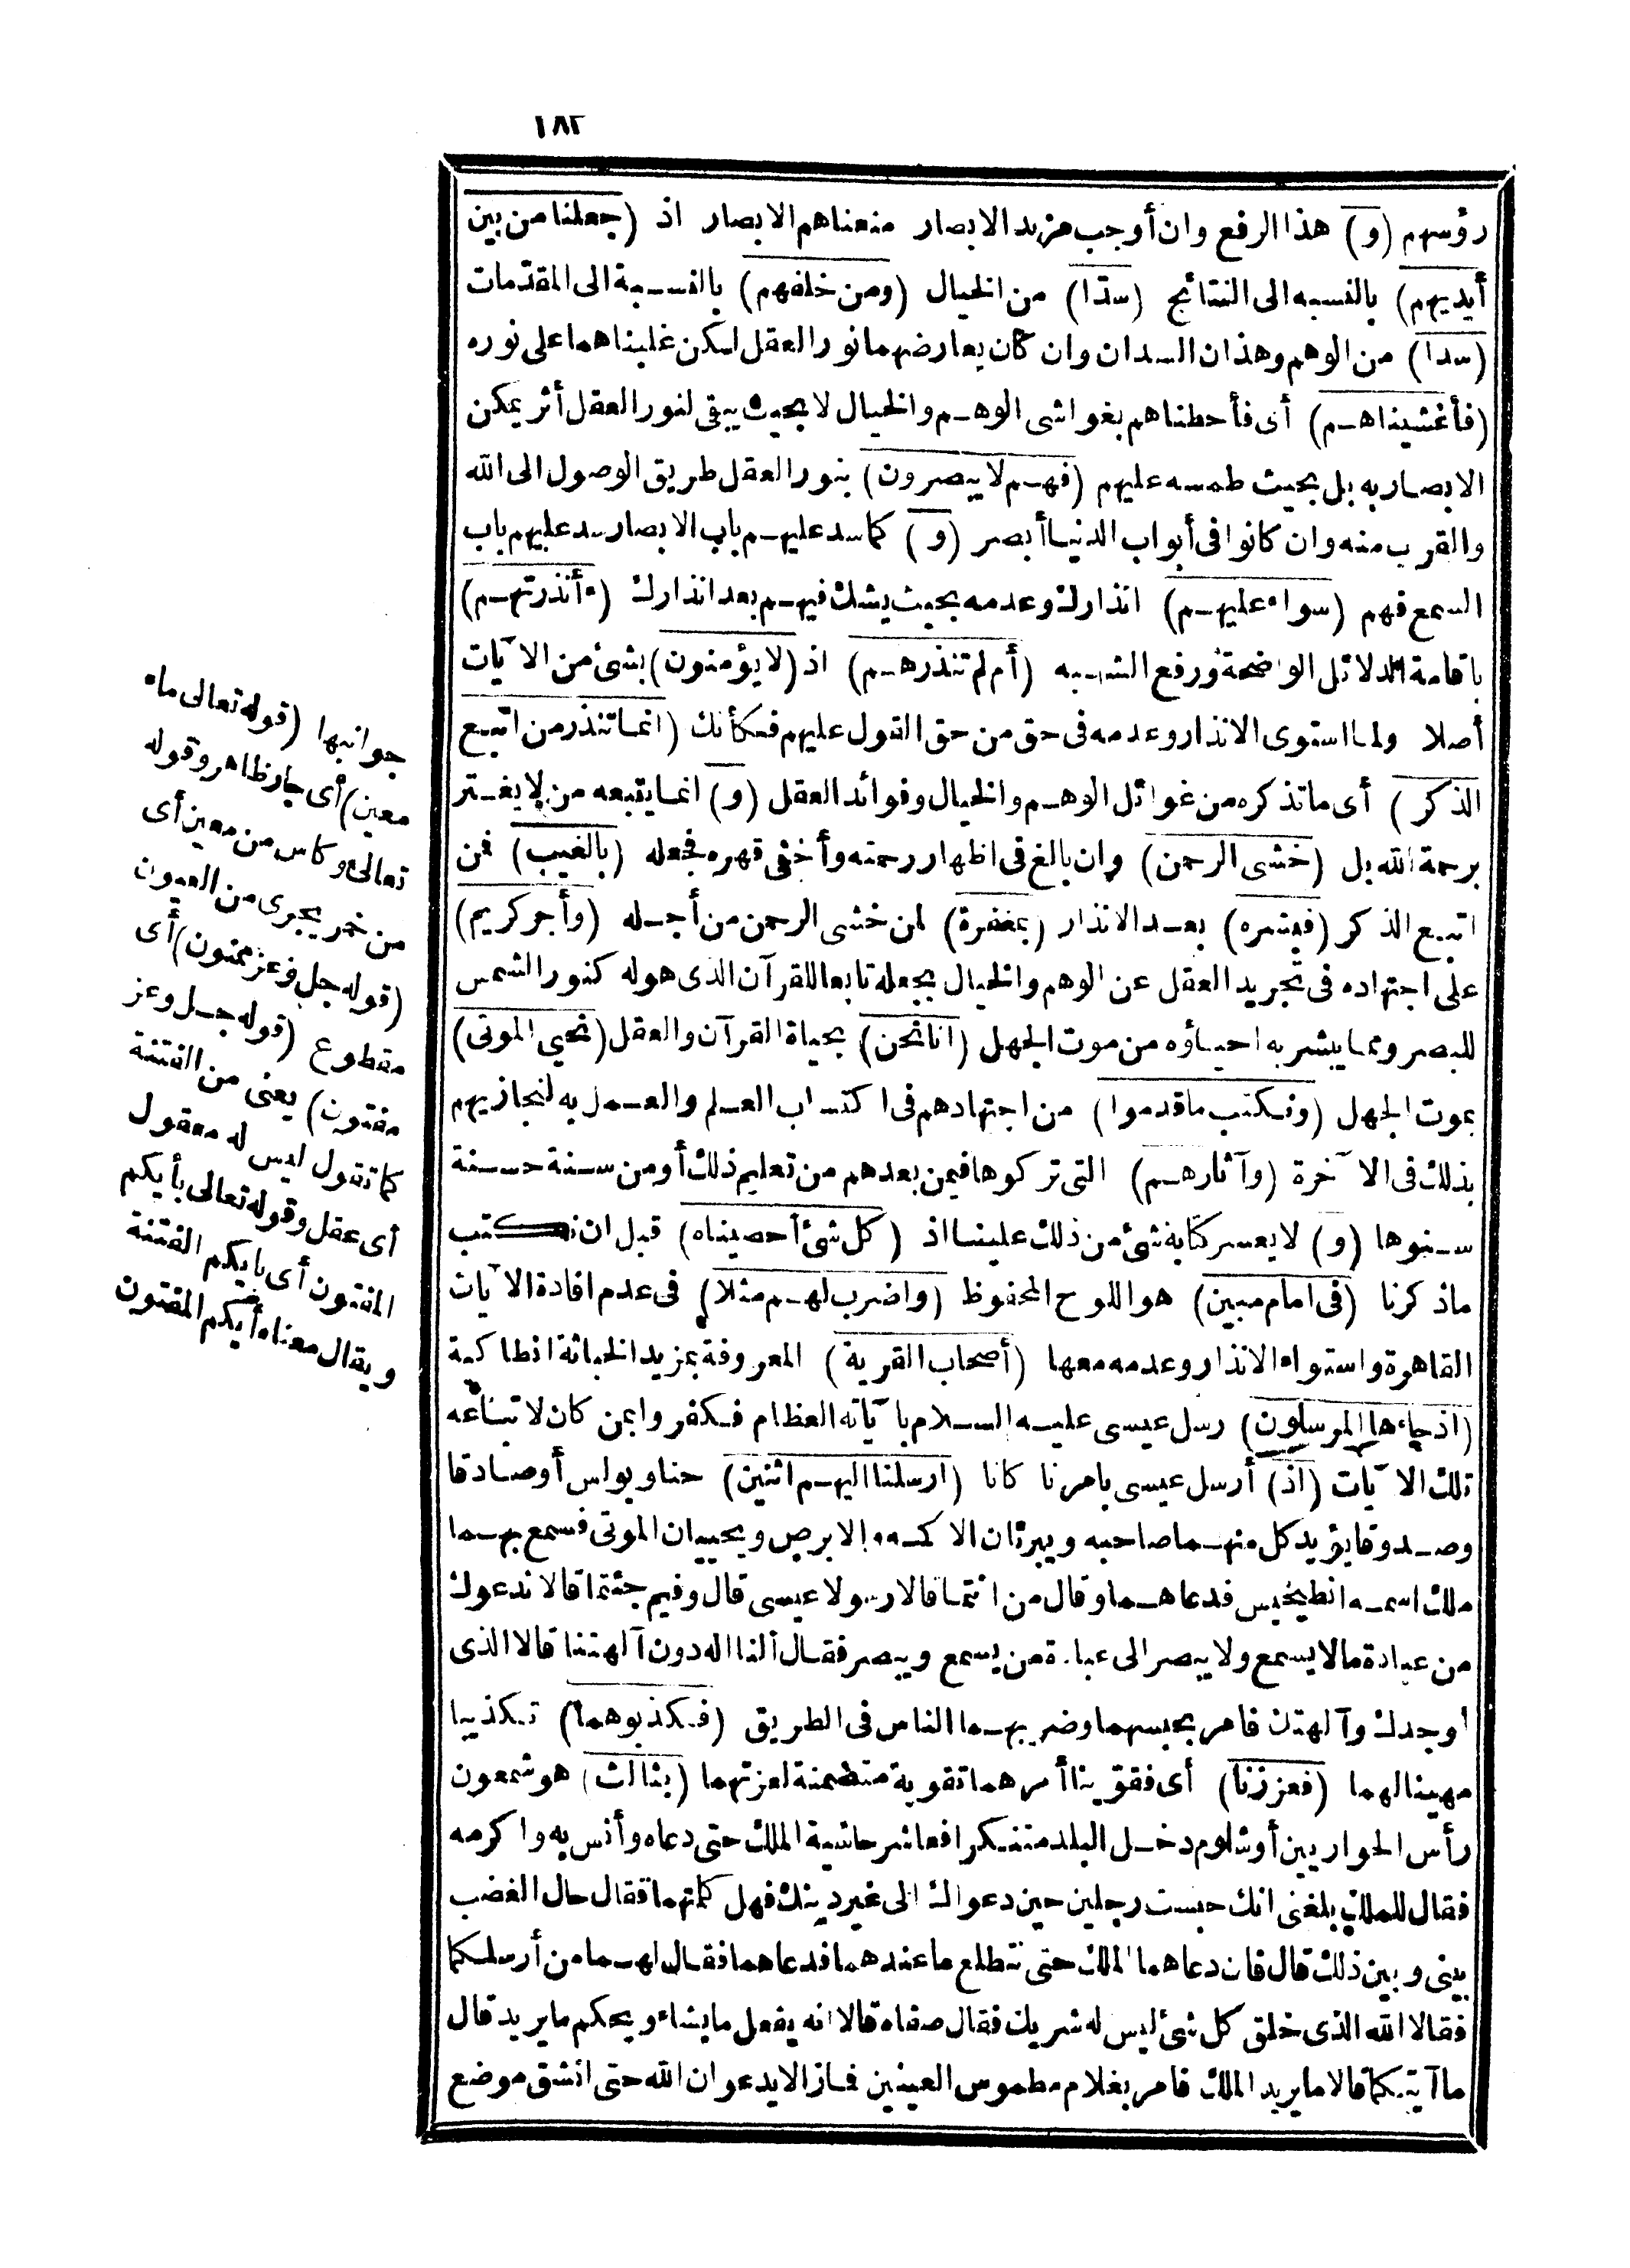 ١٨٢
رؤسهم (و) هذا الرفع وان أوجب مزيد الابصار منعناهم الابصار اذ (جعلنا من بين
أيديهم) بالنسبه الى النتائج (سدّا) من الخيال (ومن خلفهم) بالنسبة الى المقدّمات
(سدا) من الوهم وهذان السدان وان كان يعارضهما نور العقل لكن غلبناهما على نوره
(فأغشيناهم) أى فأحطناهم بغواشى الوهم والخيال لا بحيث يبقى لنور العقل أثر يمكن
الابصار به بل بحيث طمسه عليهم (فهم لا يبصرون) بنور العقل طريق الوصول الى الله
والقرب منه وان كانوا فى أبواب الدنيا أبصر (و) كما سد عليهم باب الابصار سد عليهم باب
السمع فهم (سواء عليهم) انذارك وعدمه بحيث يشك فيهم بعد انذارك (ءأنذرتهم)
باقامة الدلائل الواضحة ورفع الشبه (أم لم تنذرهم) اذ (لا يؤمنون) بشئ من الآيات
أصلا ولما استوى الانذار وعدمه فى حق من حق القول عليهم فكأنك (انما تنذر من اتبع
الذكر) أى ما تذكره من غوائل الوهم والخيال وفوائد العقل (و) انما يتبعه من لا يغتر
برحمة الله بل (خشى الرحمن) وان بالغ فى اظهار رحمته وأخفى قهره فجعله (بالغيب) فمن
اتبع الذكر (فبشره) بعد الانذار (بمغفرة) لمن خشى الرحمن من أجله (وأجر كريم)
على اجتهاده فى تجريد العقل عن الوهم والخيال بجعله تابعا للقرآن الذى هو له كنور الشمس
للبصر ومما يبشر به احياؤه من موت الجهل (انا نحن) بحياة القرآن والعقل (نحيى الموتى)
بموت الجهل (ونكتب ما قدموا) من اجتهادهم فى اكتساب العلم والعمل به لنجازيهم
بذلك فى الآخرة (وآثارهم) التى تركوها فيمن بعدهم من تعليم ذلك أو من سنة حسنة
سنوها (و) لا يعسر كتابة شئ من ذلك علينا اذ (كل شئ أحصيناه) قبل ان نكتب
ما ذكرنا (فى امام مبين) هو اللوح المحفوظ (واضرب لهم مثلا) فى عدم افادة الآيات
القاهرة واستواء الانذار وعدمه معها (أصحاب القرية) المعروفة بمزيد الخباثة انطاكية
(اذ جاءها المرسلون) رسل عيسى عليه السلام بآياته العظام فكفروا بمن كان لاتباعه
تلك الآيات (اذ) أرسل عيسى بامرنا كانا (ارسلنا اليهم اثنين) حنا وبولس أو صادقا
وصدوقا يؤيد كل منهما صاحبه ويبرئان الاكمه والابرص ويحييان الموتى فسمع بهما
ملك اسمه انطيخيس فدعاهما وقال من انتما قالا رسولا عيسى قال وفيم جئتما قالا ندعوك
من عبادة ما لا يسمع ولا يبصر الى عبادة من يسمع ويبصر فقال ألنا اله دون آلهتنا قالا الذى
أوجدك وآلهتك فامر بحبسهما وضربهما الناس فى الطريق (فكذبوهما) تكذيبا
مهينا لهما (فعززنا) أى فقوّينا أمرهما تقوية متضمنة لعزتهما (بثالث) هو شمعون
رأس الحواريين أو شلوم دخل البلد متنكرا فعاشر حاشية الملك حتى دعاه وأنس به واكرمه
فقال للملك بلغنى انك حبست رجلين حين دعواك الى غير دينك فهل كلمتهما فقال حال الغضب
بينى وبين ذلك قال فان دعاهما الملك حتى نتطلع ما عندهما فدعاهما فقال لهما من أرسلكما
فقالا الله الذى خلق كل شئ ليس له شريك فقال صفاه قالا انه يفعل ما يشاء ويحكم ما يريد قال
ما آيتكما قالا ما يريد الملك فامر بغلام مطموس العينين فمازالا يدعوان الله حتى انشق موضع
جوانبها (قوله تعالى ماء
معين) أى جار ظاهر وقوله
تعالى وكاس من معين أى
من خمر يجرى من العيون
(قوله جل وعز ممنون) أى
مقطوع (قوله جل وعز
مفتون) يعنى من الفتنة
كما تقول ليس له معقول
أى عقل وقوله تعالى بأيكم
المفتون أى بايكم الفتنة
ويقال معناه أيكم المفتون